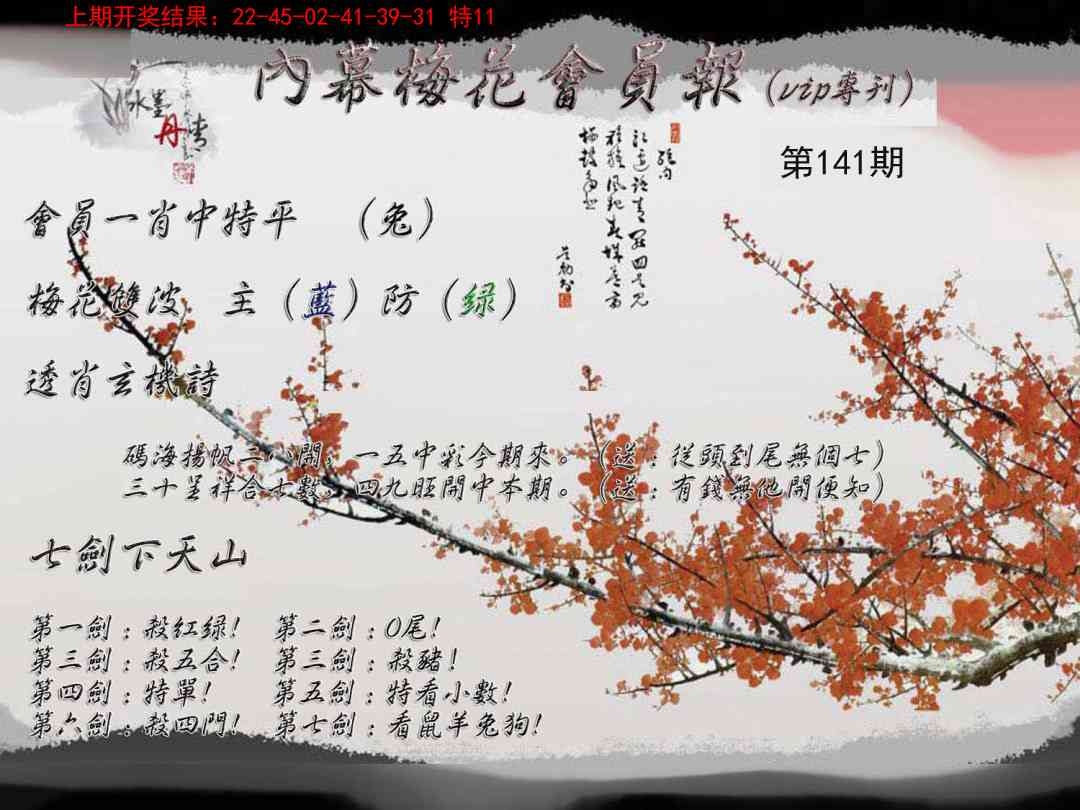 上期开奖结果：22-45-02-41-39-31 特11
內幕梅花會員報（vip專刊）
水墨
丹青
第141期
會員一肖中特平 （兔）
梅花雙波 主（藍）防（绿）
透肖玄機詩
碼海揚帆二八開，一五中彩今期來。（送：從頭到尾無個七）
三十呈祥合七數，四九旺開中本期。（送：有錢無他開便知）
七劍下天山
第一劍：殺红绿！ 第二劍：0尾！
第三劍：殺五合！ 第三劍：殺豬！
第四劍：特單！ 第五劍：特看小數！
第六劍：殺四門！ 第七劍：看鼠羊兔狗！